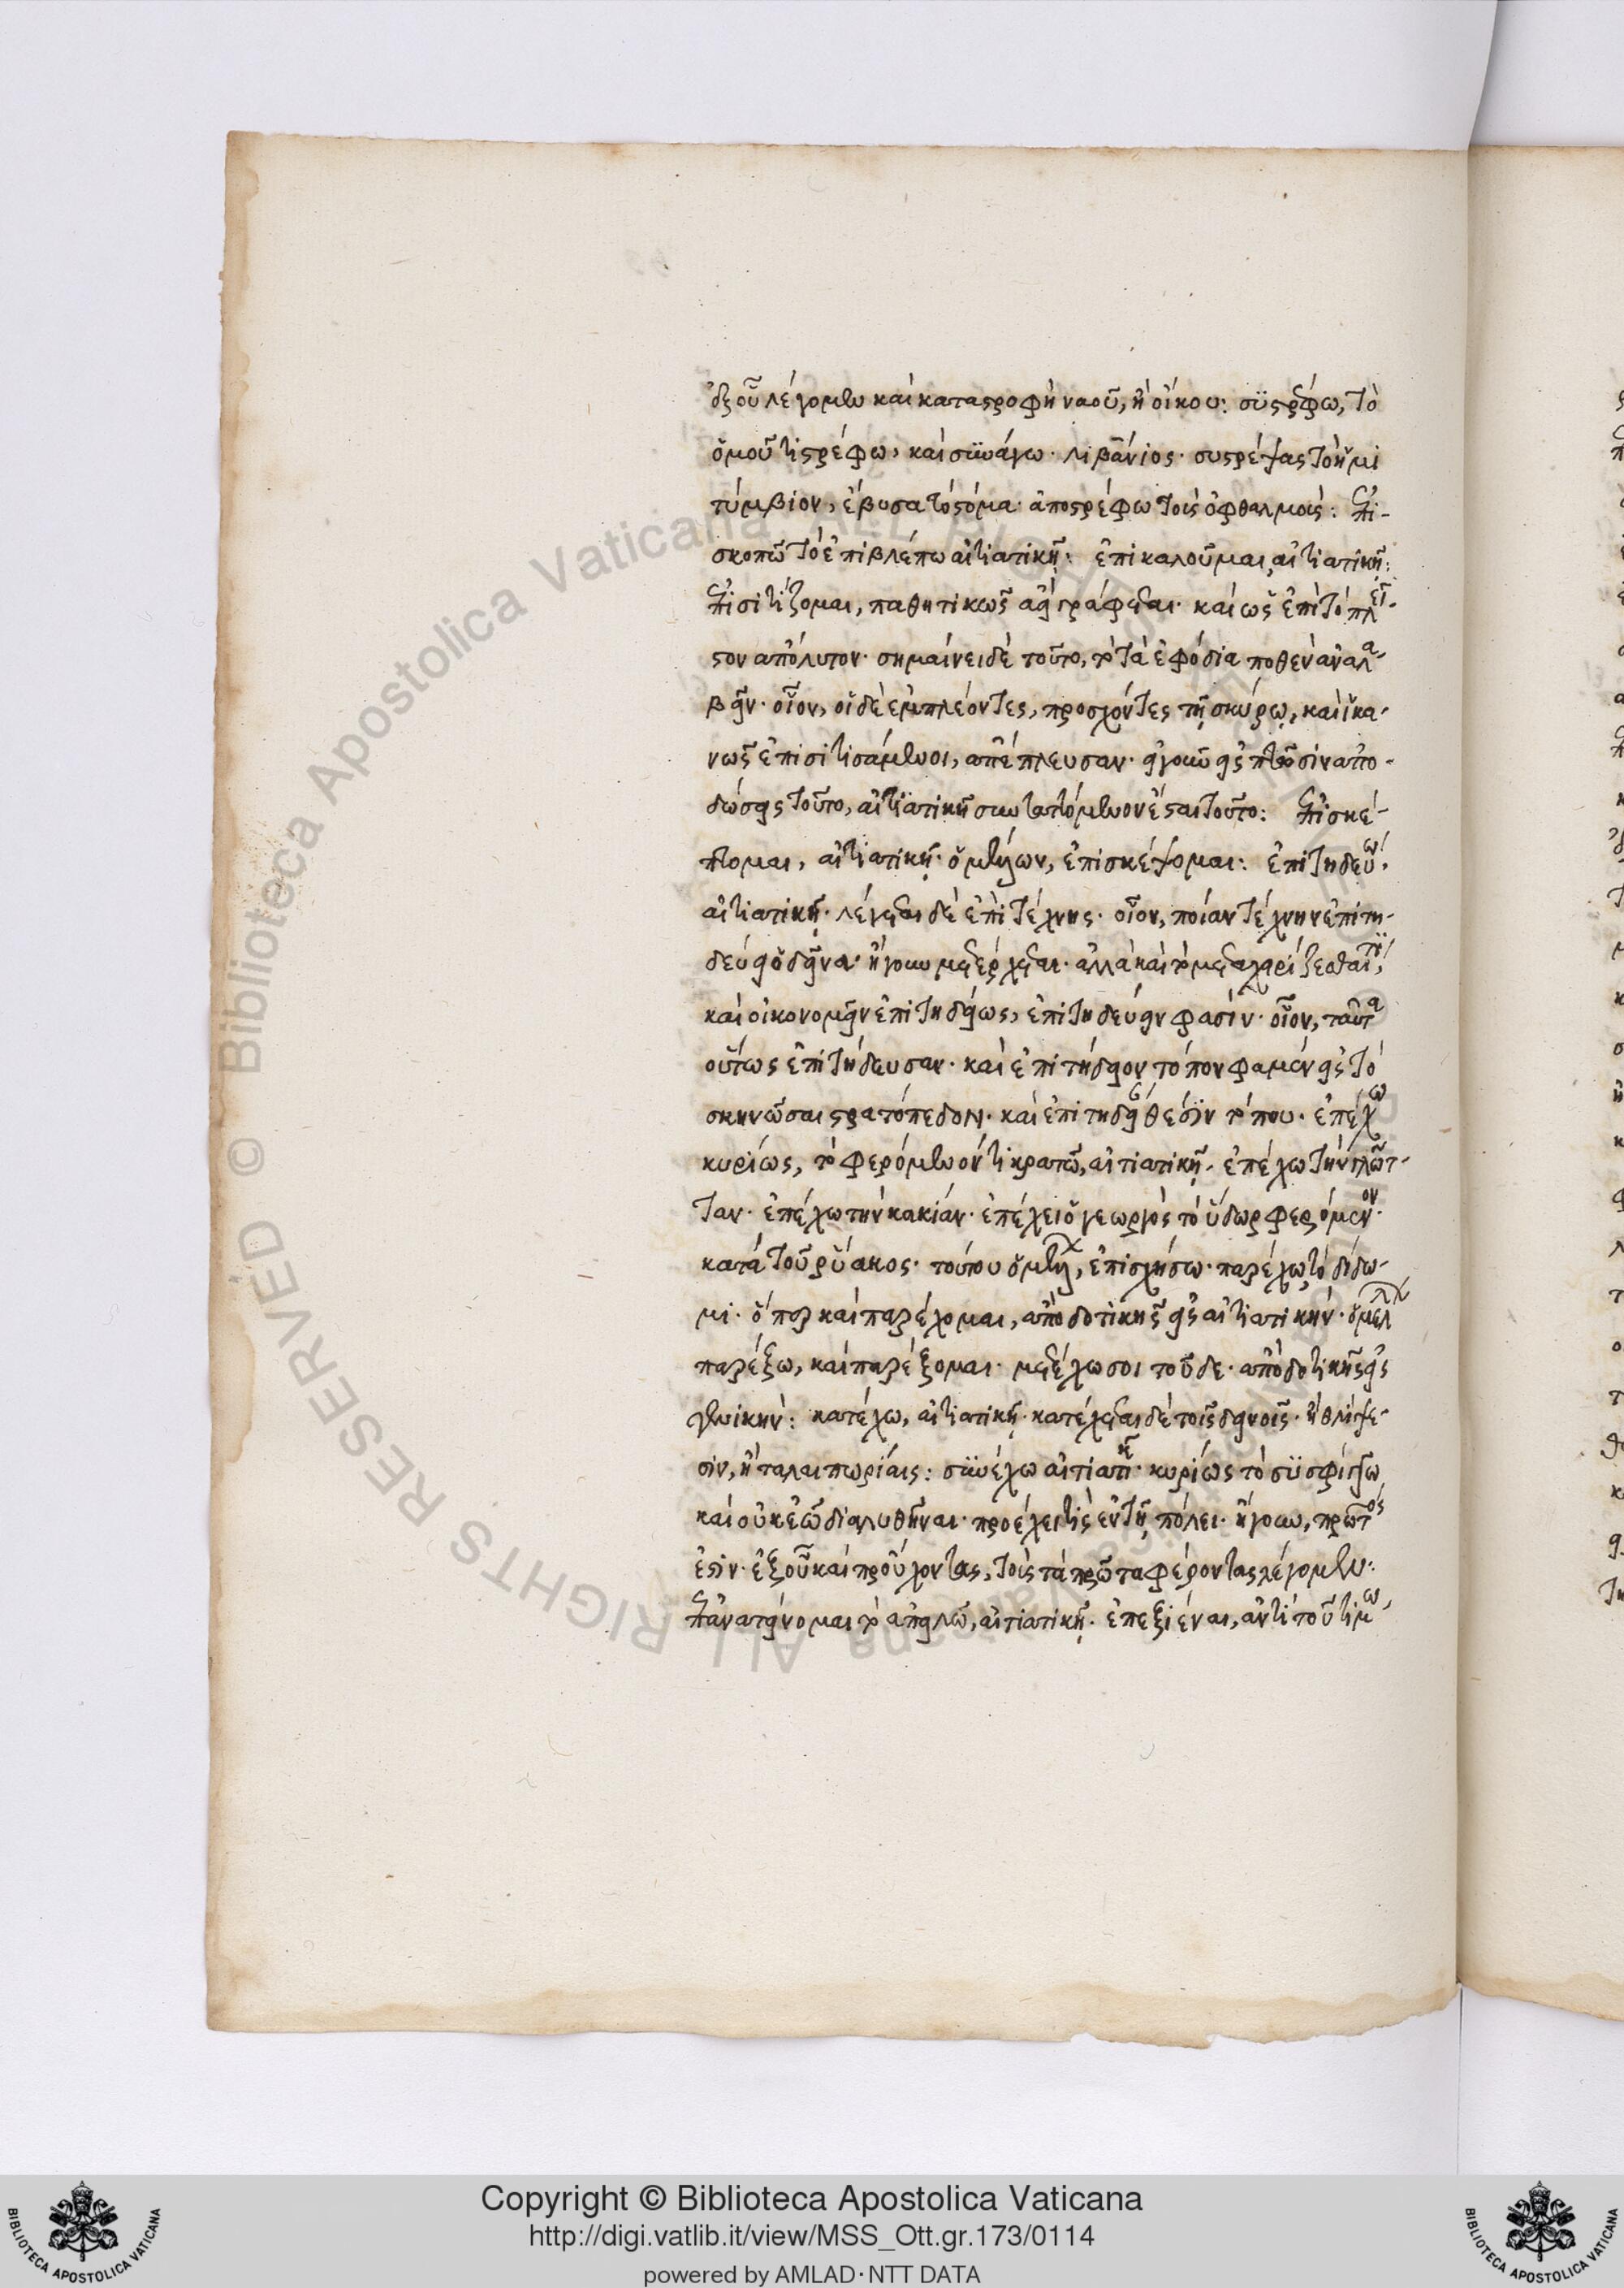 ἐξ οὗ λέγομεν καὶ καταστροφὴ ναοῦ, ἢ οἴκου: συστρέφω, τὸ
ὁμοῦ τι στρέφω, καὶ συνάγω· λιβάνιος· συστρέψας τὸ ἡμι
τύμβιον, ἔβυσα τὸ στόμα· ἀποστρέφω τοῖς ὀφθαλμοῖς: ἐπι-
σκοπῶ τὸ ἐπιβλέπω αἰτιατικῇ: ἐπικαλοῦμαι, αἰτιατικῇ:
ἐπισιτίζομαι, παθητικῶς ἀεὶ γράφεται· καὶ ὡς ἐπὶ τὸ πλεῖ-
στον ἀπόλυτον· σημαίνει δὲ τοῦτο, τὸ τὰ ἐφόδια ποθὲν ἀναλα-
βεῖν· οἷον, οἱ δὲ ἐμπλέοντες, προσχόντες τῇ σκύρῳ, καὶ ἱκα-
νῶς ἐπισιτισάμενοι, ἀπέπλευσαν· εἰ γοῦν εἰς πτῶσιν ἀπο-
δώσεις τοῦτο, αἰτιατικῇ συνταττόμενον ἔσται τοῦτο: ἐπισκέ-
πτομαι, αἰτιατικῇ· ὁ μέλλων, ἐπισκέψομαι: ἐπιτηδεύω
αἰτιατικῇ· λέγεται δὲ ἐπὶ τέχνης· οἷον, ποίαν τέχνην ἐπιτη-
δεύει ὁ δεῖνα· ἤγουν μετέρχεται· ἀλλὰ καὶ τὸ μεταχειρίζεσθαί τι,
καὶ οἰκονομεῖν ἐπιτηδείως, ἐπιτηδεύειν φασίν· οἷον, ταῦτα
οὕτως ἐπιτήδευσαν· καὶ ἐπιτήδειον τόπον φαμὲν εἰς τὸ
σκηνῶσαι στρατόπεδον· καὶ ἐπιτηδεία θέσιν τόπου· ἐπέχω
κυρίως, τὸ φερόμενόν τι κρατῶ, αἰτιατικῇ· ἐπέχω τὴν γλῶτ-
ταν· ἐπέχω τὴν κακίαν· ἐπέχει ὁ γεωργὸς τὸ ὕδωρ φερόμενον
κατὰ τοῦ ῥύακος· τούτου ὁ μέλλων, ἐπισχήσω· παρέχω τὸ δίδω-
μι· ὅπερ καὶ παρέχομαι, ἀπὸ δοτικῆς εἰς αἰτιατικήν· ὁ μέλλων
παρέξω, καὶ παρέξομαι· μετέχω σοι τοῦδε· ἀπὸ δοτικῆς εἰς
γενικήν: κατέχω, αἰτιατικῇ· κατέχεται δὲ τοῖς δεινοῖς· ἢ θλίψε-
σιν, ἢ ταλαιπωρίαις: συνέχω αἰτιατικῇ· κυρίως τὸ συσφίγγω
καὶ οὐκ ἐῶ διαλυθῆναι· προέχει τις ἐν τῇ πόλει· ἤγουν, πρῶτός
ἐστιν· ἐξ οὗ καὶ προὔχοντας, τοὺς τὰ πρῶτα φέροντας λέγομεν:
ἐπανατείνομαι τὸ ἀπειλῶ, αἰτιατικῇ· ἐπεξιέναι, ἀντὶ τοῦ τιμω
Copyright © Biblioteca Apostolica Vaticana
http://digi.vatlib.it/view/MSS_Ott.gr.173/0114
powered by AMLAD·NTT DATA